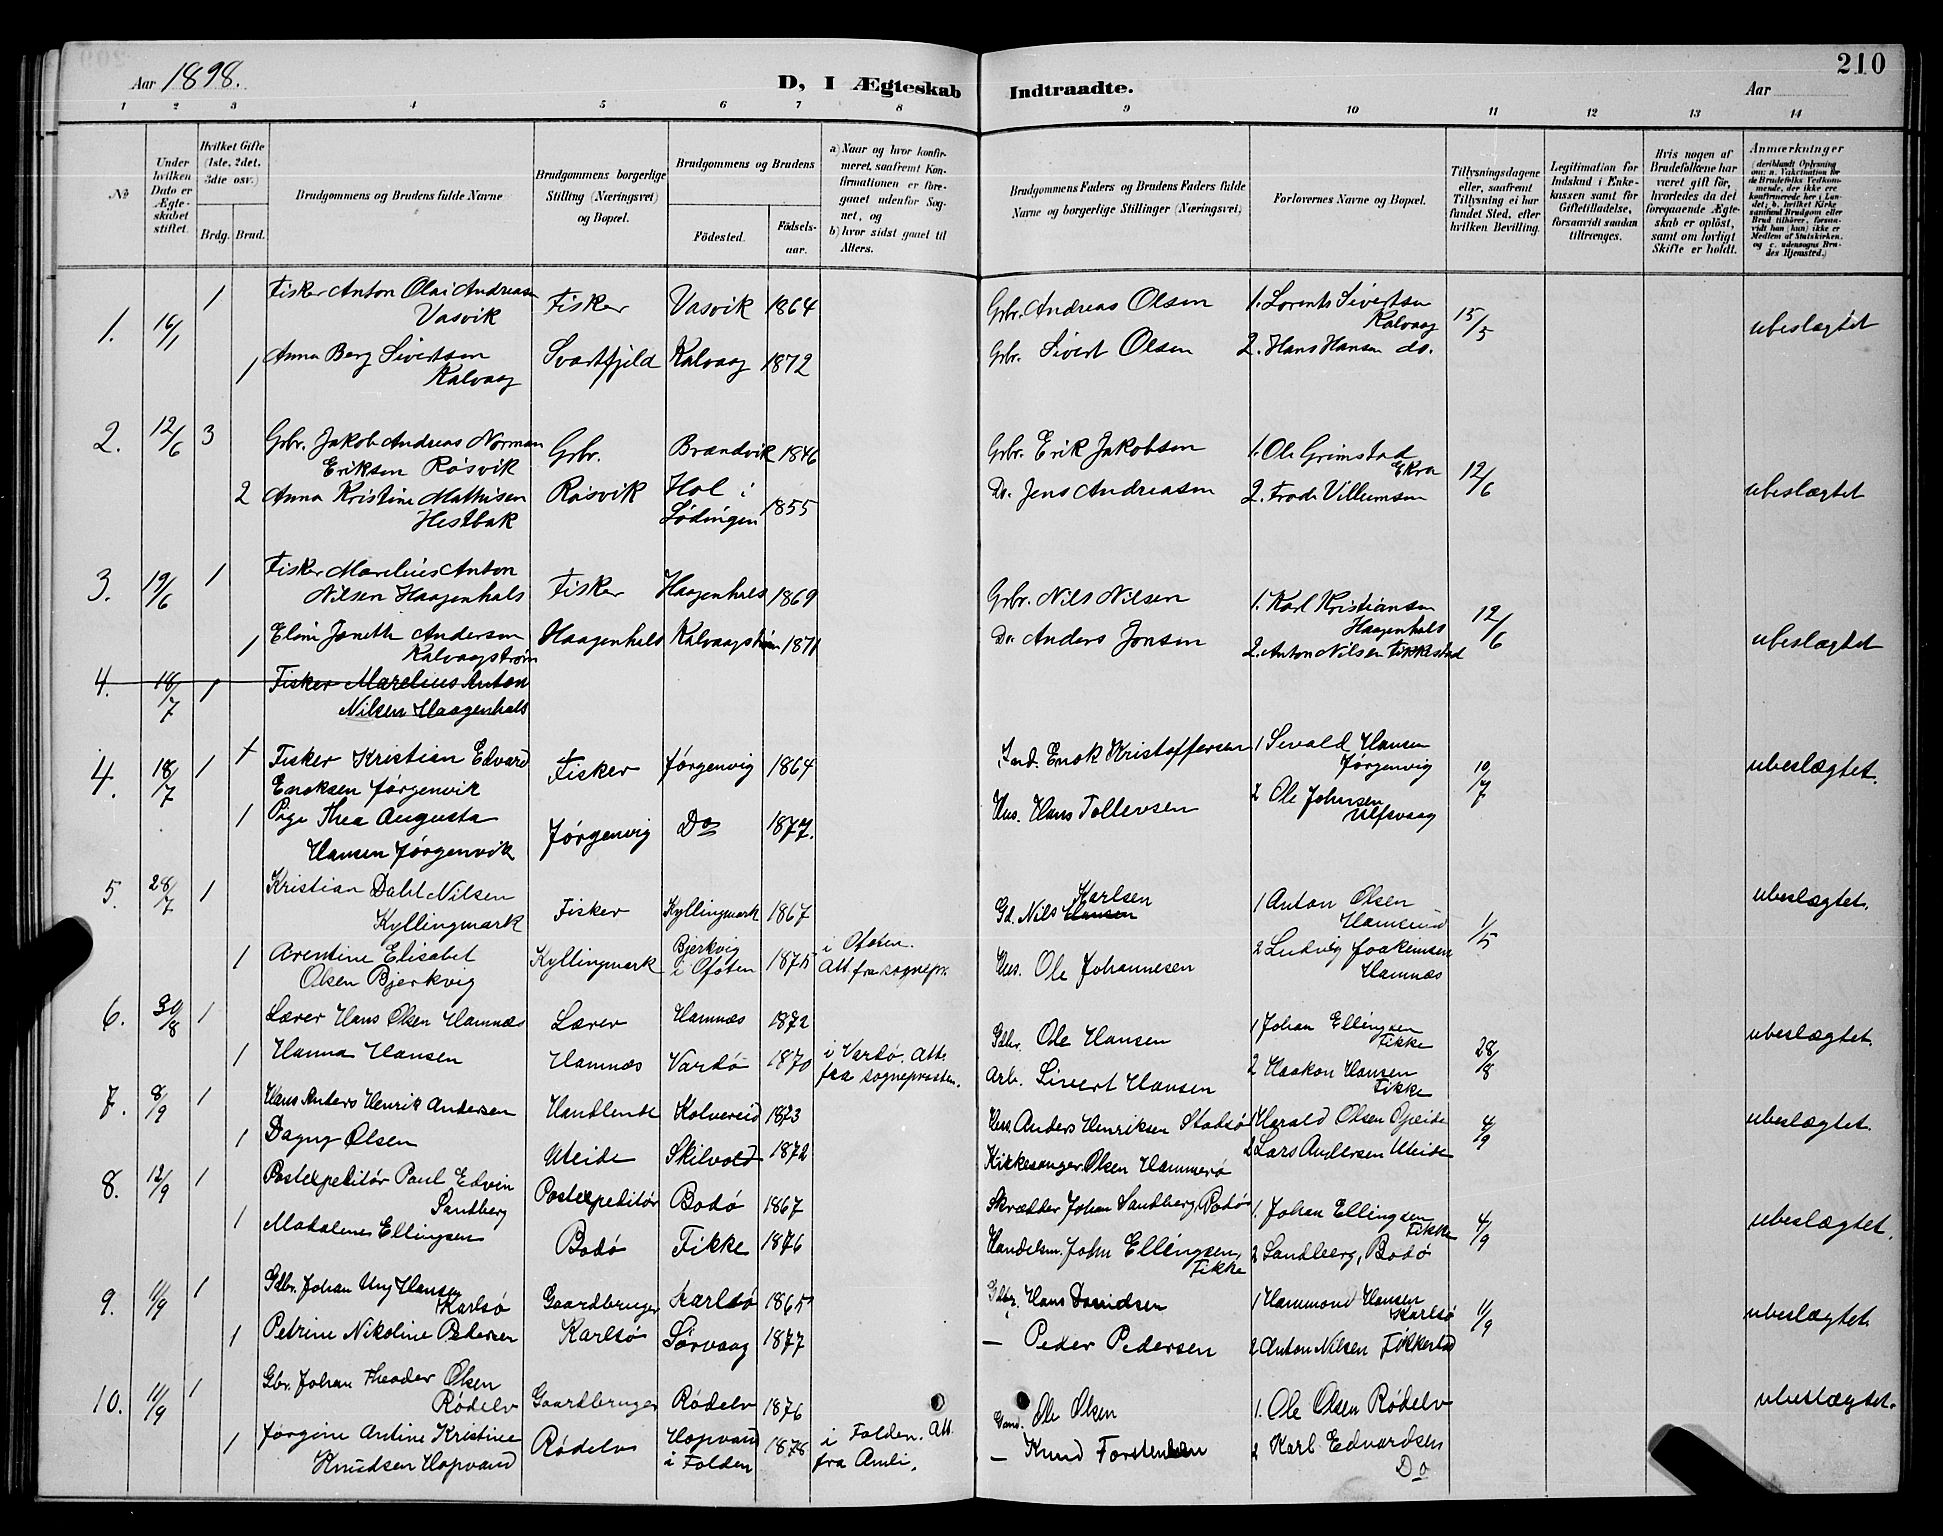 210
Aar 1898.
D, I Ægteskab Indtraadte.
Aar
1 2 3 4 5 6 7 8 9 10 11 12 13 14
No.
Under hvilken Dato er Ægteskabet stiftet.
Hvilket Gifte (1ste, 2det, 3die osv.)
Brdg. Brud.
Brudgommens og Brudens fulde Navne
Brudgommens borgerlige Stilling (Næringsvei) og Bopæl.
Brudgommens og Brudens
Fødested.
Fødselsaar.
a) Naar og hvor konfirmeret, saafremt Konfirmationen er foregaaet udenfor Sognet, og
b) hvor sidst gaaet til Alters.
Brudgommens Faders og Brudens Faders fulde Navne og borgerlige Stillinger (Næringsvei)
Forlovernes Navne og Bopæl.
Tillysningsdagene eller, saafremt Tillysning ei har fundet Sted, efter hvilken Bevilling.
Legitimation for Indskud i Enkekassen samt for Giftetilladelse, forsaavidt saadan tiltrænges.
Hvis nogen af Brudefolkene har været gift før, hvorledes da det foregaaende Ægteskab er opløst, samt om lovligt Skifte er holdt.
Anmærkninger
(deriblandt Oplysning om: a. Vakcination for de Brudefolks Vedkommende, der ikke ere konfirmerede her i Landet; b. hvilket Kirkesamfund Brudgom eller Brud tilhører, forsaavidt han (hun) ikke er Medlem af Statskirken, og c. udensogns Brudes Hjemsted.)
1. 16/1 1 Fisker Anton Olai Andreasen Vasvik Fisker Vasvik 1864 Grbr. Andreas Olsen 1. Lorents Sivertsen Kalvaag 15/5 ubeslægtet
1 Anna Berg Sivertsen Kalvaag Svartfjeld Kalvaag 1872 Grbr. Sivert Olsen 2. Hans Hansen do.
2. 12/6 3 Grbr. Jakob Andreas Norman Eriksen Røsvik Grbr. Brandvik 1846 Grbr. Erik Jakobsen 1. Ole Grimstad Ekra 12/6 ubeslægtet
2 Anna Kristine Mathisen Hestbak Røsvik Hol i Lødingen 1855 Do. Jens Andreasen 2. Frode Villumsen
3. 19/6 1 Fisker Marelius Anton Nilsen Haagenhals Fisker Haagenhals 1869 Grbr. Nils Nilsen 1. Karl Kristiansen Haagenhals 12/6 ubeslægtet
1 Elini Janeth Andersen Kalvaagstrøm Haagenhals Kalvaagstrøm 1871 Do. Anders Jonsen 2. Anton Nilsen Fikkstad
4. 18/7 1 Fisker Marelius Anton Nilsen Haagenhals
4. 18/7 1 + Fisker Kristian Edvard Enoksen Jørgenvik Fisker Jørgenvig 1864 Ind. Enok Kristoffersen 1 Sevald Hansen Jørgenvig 10/7 ubeslægtet.
1 Pige Thea Augusta Hansen Jørgenvik Jørgenvig Do 1877. Hus. Hans Tollevsen 2 Ole Johnsen Ulfsvaag
5. 28/7 1 Kristian Dahl Nilsen Kyllingmark Fisker Kyllingmark 1867 Gd. Nils Hansen Karlsen 1 Anton Olsen Hamsund 1/5 ubeslægtet.
1 Arentine Elisabet Olsen Bjerkvig Kyllingmark Bjerkvig i Ofoten 1875 i Ofoten. Att. fra sognepr. Hus. Ole Johannesen 2 Ludvig Joakimsen Hamnæs
6. 30/8 1 Lærer Hans Olsen Hamnæs Lærer Hamnæs 1872 Gdbr. Ole Hansen 1 Johan Ellingsen Fikke 28/8 ubeslægtet.
1 Hanna Hansen Hamnæs Vardø 1870 i Vardø. Att. fra sognepresten. Arb. Sivert Hansen 2 Haakon Hansen Fikke
7. 8/9 1 Hans Anders Henrik Andersen Handlende Kolvereid 1873 Hus. Anders Henriksen Stadsø 1 Harald Olsen Opeide 4/9 ubeslægtet.
1 Dagny Olsen Uteide Skilvold 1872 Kirkesanger Olsen Hammerø 2 Lars Andersen Uteide
8. 12/9 1 Postexpeditør Paul Edvin Sandberg Postexpeditør Bodø 1867 Skrædder Johan Sandberg, Bodø 1. Johan Ellingsen Fikke 4/9 ubeslægtet.
1 Madalene Ellingsen Bodø Fikke 1876 Handelsm. John Ellingsen, Fikke 2 Sandberg, Bodø
9. 11/9 1 Gdbr. Johan Urij Hansen Karlsø Gaardbruger Karlsø 1865 Gdbr. Hans Davidsen 1 Hammond Hansen Karlsø 11/9 ubeslægtet.
1 Petrine Nikoline Pedersen Karlsø Sørvaag 1877 — Peder Pedersen 2 Anton Nilsen Fikkestad
10. 11/9 1 Gbr. Johan Theodor Olsen Rødelv Gaardbruger Rødelv 1876 Gaard. Ole Olsen 1. Ole Olsen Rødelv ubeslægtet.
1 Jørgine Antine Kristine Knudsen Hopvand Rødelv Hopvand i Folden 1878 i Folden. Att. fra — Knud Forstensen 2 Karl Edvardsen Do